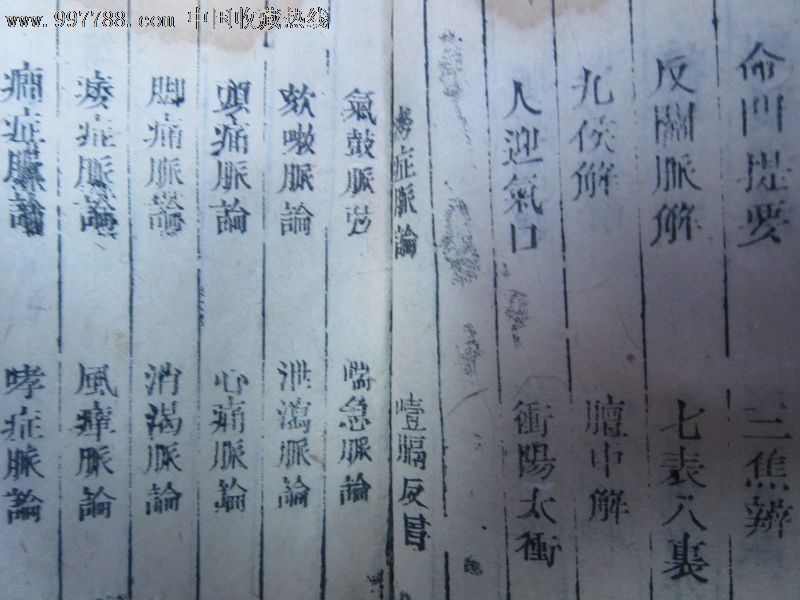 www.997788.com 中国收藏热线
命門提要 三焦辨
反關脈解 七表八裏
九侯解 膻中解
人迎氣口 衝陽太衝
癆症脈論 壹膈反胃
氣鼓脈 喘急脈論
欬嗽脈論 泄瀉脈論
頭痛脈論 心痛脈論
脚痛脈論 消渴脈論
痿症脈論 風痺脈論
症脈論 哮症脈論